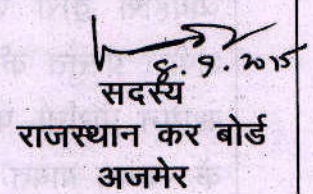 8.9.2015
सदस्य
राजस्थान कर बोर्ड
अजमेर